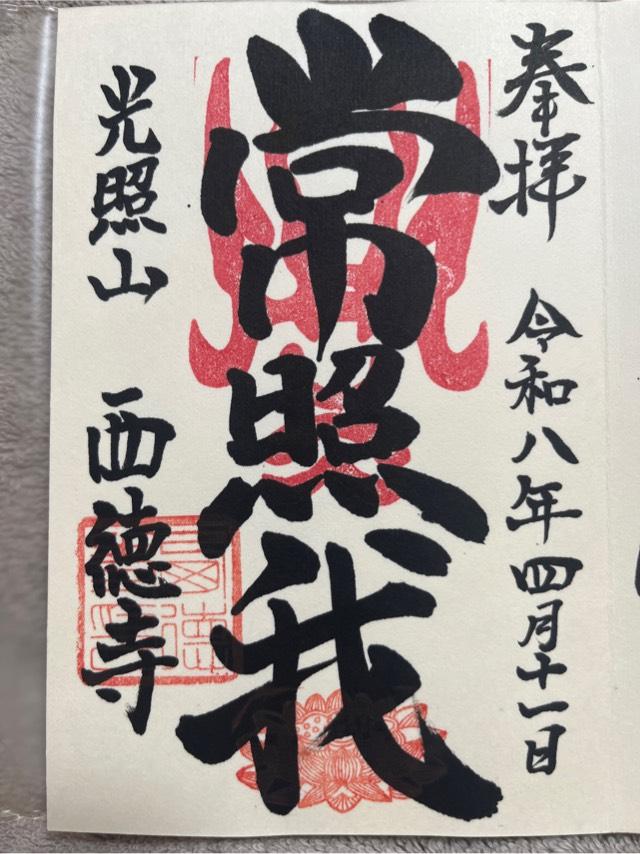 奉拝 令和八年四月十一日
常照我
光照山 西徳寺